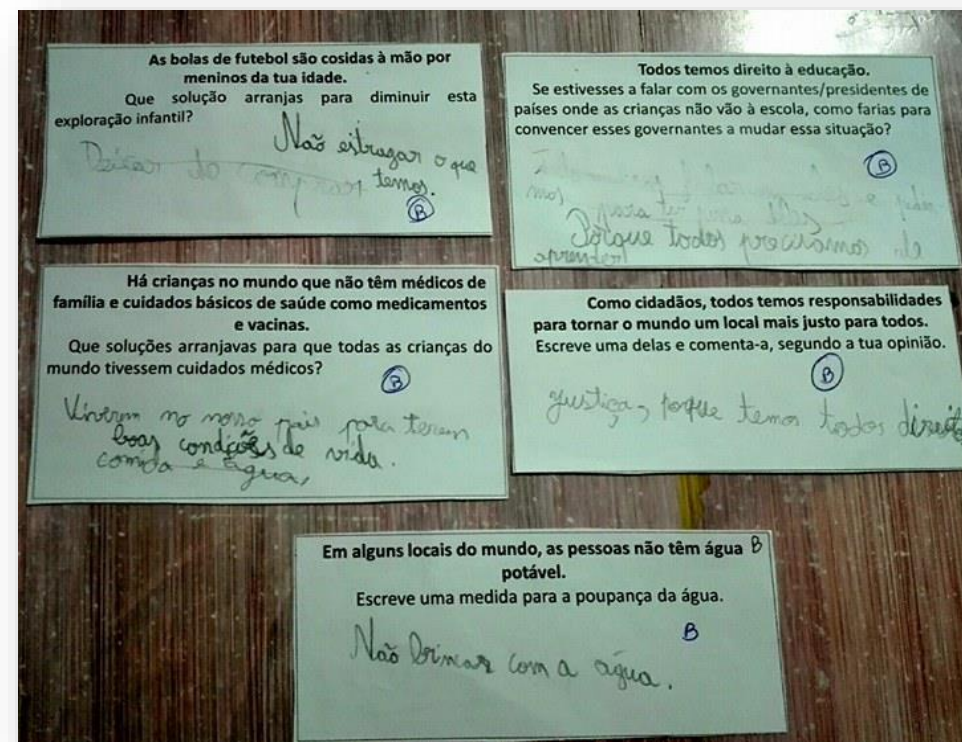 As bolas de futebol são cosidas à mão por
meninos da tua idade.
Que solução arranjas para diminuir esta
exploração infantil?
Não estragar o que
Deicar de comprar temos.
B
Todos temos direito à educação.
Se estivesses a falar com os governantes/presidentes de
países onde as crianças não vão à escola, como farias para
convencer esses governantes a mudar essa situação?
B
mos para ter uma
Porque todos precisamos de
aprender
Há crianças no mundo que não têm médicos de
família e cuidados básicos de saúde como medicamentos
e vacinas.
Que soluções arranjavas para que todas as crianças do
mundo tivessem cuidados médicos?
B
Viverem no nosso país para terem
boas condições de vida.
comida e água,
Como cidadãos, todos temos responsabilidades
para tornar o mundo um local mais justo para todos.
Escreve uma delas e comenta-a, segundo a tua opinião.
B
justiça, porque temos todos direito
Em alguns locais do mundo, as pessoas não têm água B
potável.
Escreve uma medida para a poupança da água.
B
Não brincar com a água.